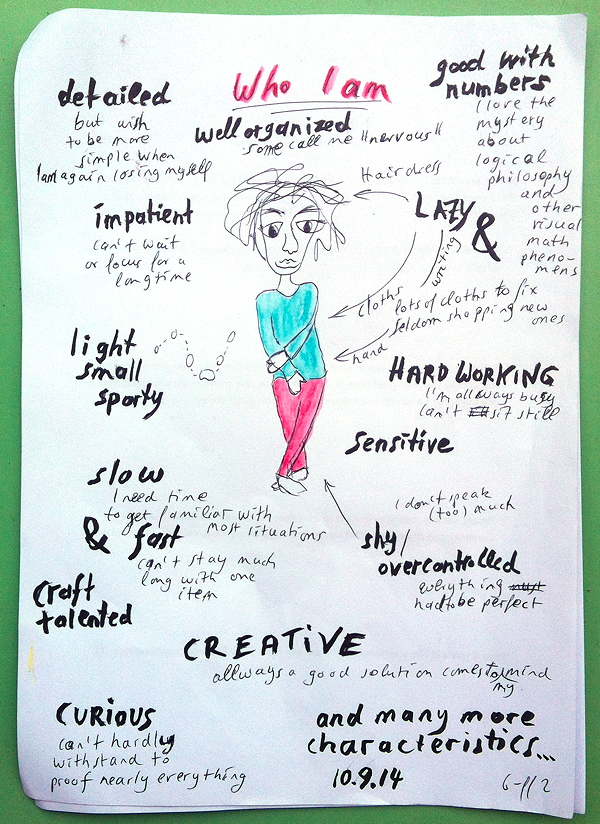 Who I am
detailed
but wish
to be more
simple when
I am again losing myself
well organized
some call me "nervous"
good with
numbers
I love the
mystery
about
logical
philosophy
and
other
visual
math
pheno-
mens
impatient
can't wait
or focus for a
long time
Hairdress
LAZY
&
writing
cloths
lots of cloths to fix
seldom shopping new
ones
hand
light
small
sporty
HARD WORKING
I'm allways busy
can't sit still
sensitive
slow
I need time
to get familiar with
most situations
& fast
can't stay much
long with one
item
I don't speak
(too) much
shy/
overcontrolled
everything
had to be perfect
craft
talented
CREATIVE
allways a good solution comes to mind
my
CURIOUS
can't hardly
withstand to
proof nearly everything
and many more
characteristics...
10.9.14